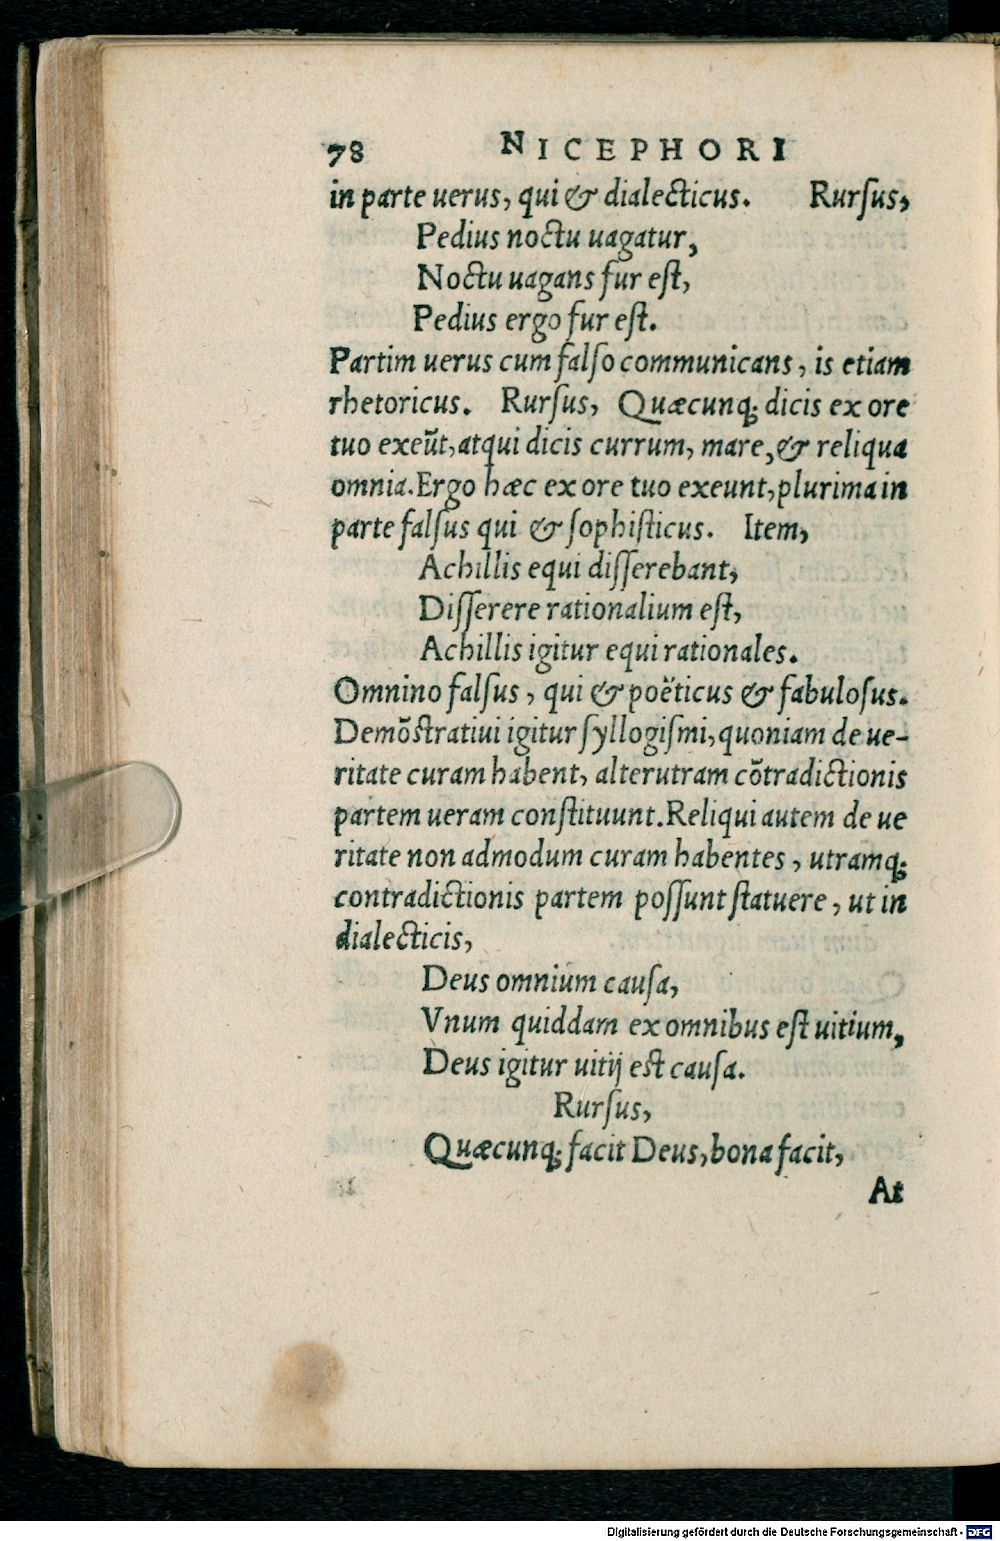 78 NICEPHORI
in parte uerus, qui & dialecticus. Rurſus,
Pedius noctu uagatur,
Noctu uagans fur eſt,
Pedius ergo fur eſt.
Partim uerus cum falſo communicans, is etiam
rhetoricus. Rurſus, Quæcunq; dicis ex ore
tuo exeũt, atqui dicis currum, mare, & reliqua
omnia. Ergo hæc ex ore tuo exeunt, plurima in
parte falſus qui & ſophiſticus. Item,
Achillis equi diſſerebant,
Diſſerere rationalium eſt,
Achillis igitur equi rationales.
Omnino falſus, qui & poëticus & fabuloſus.
Demõſtratiui igitur ſyllogiſmi, quoniam de ue-
ritate curam habent, alterutram cõtradictionis
partem ueram conſtituunt. Reliqui autem de ue
ritate non admodum curam habentes, utramq;
contradictionis partem poſſunt ſtatuere, ut in
dialecticis,
Deus omnium cauſa,
Vnum quiddam ex omnibus eſt uitium,
Deus igitur uitij eſt cauſa.
Rurſus,
Quæcunq; facit Deus, bona facit,
At
Digitalisierung gefördert durch die Deutsche Forschungsgemeinschaft - DFG